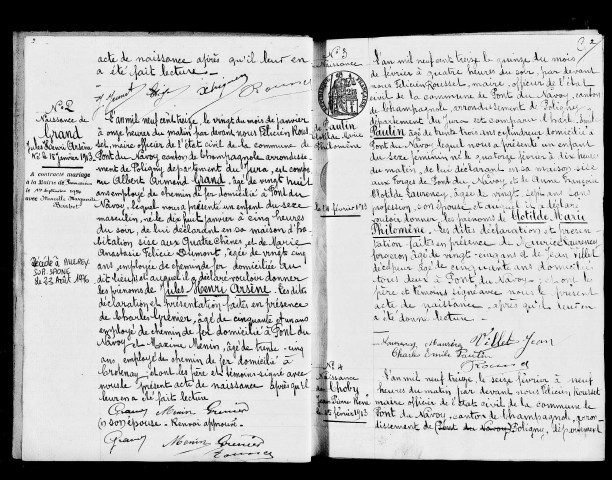 acte de naissance après qu'il leur en
a été fait lecture —
N° 2
Naissance de
Grand
Jules Henri Arsène
Né le 18 janvier 1913
A contracté mariage
à la Mairie de
avec
Décédé à AUXEY
SUR SAONE
le 23 Août 1976
L'an mil neuf cent treize, le vingt du mois de janvier
à onze heures du matin par devant nous Félicien Rous
set, maire officier de l'état civil de la commune de
Pont du Navoy canton de Champagnole arrondisse
ment de Poligny, département du Jura, est compa
ru Albert Armand Grand, âgé de vingt huit
ans employé de chemin de fer domicilié à Pont du
Navoy, lequel nous a présenté un enfant du sexe
masculin, né le dix huit janvier à cinq heures
du soir, de lui déclarant en sa maison d'ha
bitation sise aux Quatre Chênes, et de Marie
Anastasie Félicie Dumont, âgée de vingt cinq
ans employée de chemin de fer domiciliée au
dit lieu, et auquel il a déclaré vouloir donner
les prénoms de Jules Henri Arsène. Les dites
déclaration et présentation faites en présence
de Charles Grenier, âgé de cinquante et un ans
employé de chemin de fer domicilié à Pont du
Navoy et Maxime Menin, âgé de trente cinq
ans, employé de chemin de fer domicilié à
Crotenay, et ont les père et témoins signé avec
nous le présent acte de naissance après qu'il
leur en a été fait lecture
Grand Menin Grenier
(1) son épouse. Renvoi approuvé.
Grand Menin Grenier
Rousset
2
N° 3
Naissance
de Paulin
Clotilde Marie
Philomène
le 14 février 1913
L'an mil neuf cent treize le quinze du mois
de février à quatre heures du soir, par devant
nous Félicien Rousset, maire, officier de l'état
civil de la commune de Pont du Navoy, canton
de Champagnole, arrondissement de Poligny,
département du Jura est comparu Charles Emile
Paulin âgé de trente trois ans cultivateur domicilié à
Pont du Navoy lequel nous a présenté un enfant
du sexe féminin né le quatorze février à dix heures
du matin, de lui déclarant en sa maison sise
aux Forges de Pont du Navoy, et de Anne Françoise
Clotilde Laurency, âgée de vingt sept ans sans
profession, son épouse, et auquel il a déclaré
vouloir donner les prénoms de Clotilde Marie
Philomène. Les dites déclaration et présen
tation faites en présence de Maurice Laurency,
forgeron, âgé de vingt-cinq ans et Jean Villet
âgé de cinquante ans domicili
és tous deux à Pont du Navoy — et ont les
père et témoins signé avec nous le présent
acte de naissance, après qu'il leur en
a été donné lecture —
Laurency Maurice Villet Jean
Charles Emile Paulin
Rousset
N° 4
Naissance
de Thoby
Jean Pierre René
février 1913
L'an mil neuf cent treize le seize février à neuf
heures du matin par devant nous Félicien Rousset
maire officier de l'état civil de la commune de
Pont du Navoy, canton de Champagnole, arron
dissement de (Pont du Navoy) Poligny, département